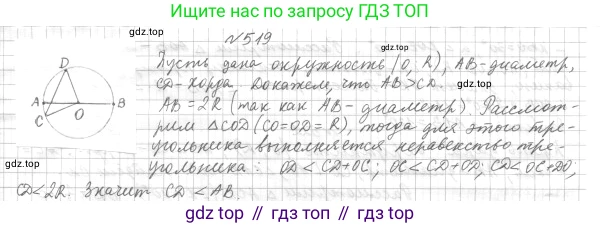 Ищите нас по запросу ГДЗ ТОП
gdz.top
№519
gdz.top
Пусть дана окружность (O, R), AB-диаметр,
CD-хорда. Докажем, что AB>CD.
AB=2R (так как AB-диаметр). Рассмот-
рим △COD (CO=OD=R), тогда для этого тре-
угольника выполняется неравенство тре-
угольника: OD<CD+OC; OC<CD+OD; CD<OC+DO;
CD<2R. Значит CD<AB.
D
A
O
B
C
gdz.top
gdz.top
gdz.top // гдз.топ // gdz.top